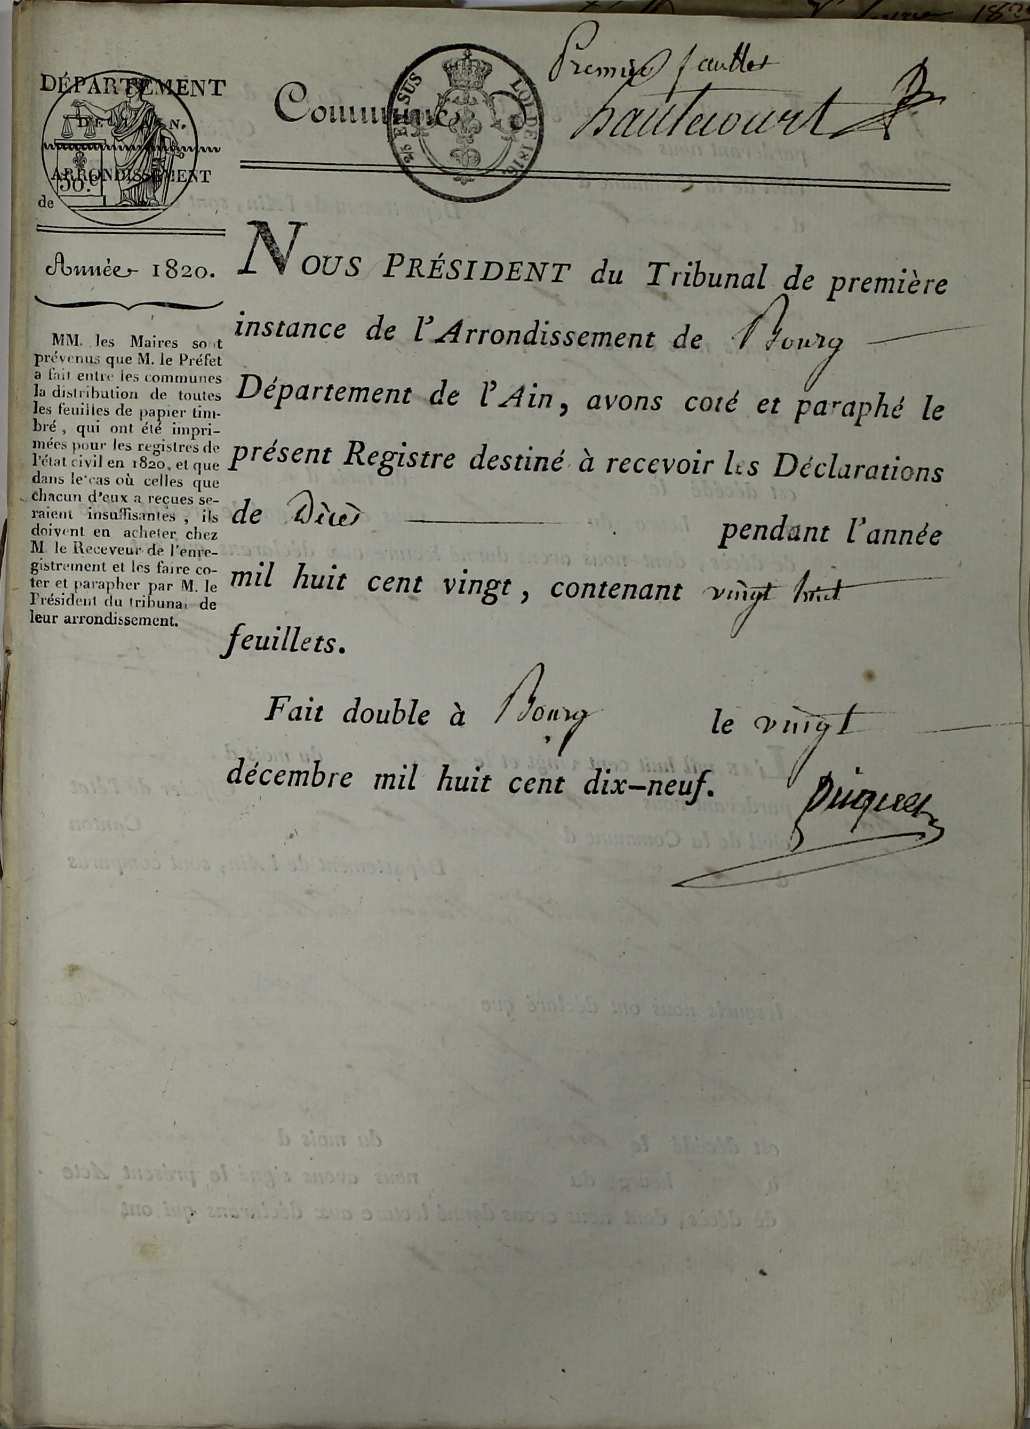 Premier feuillet
DÉPARTEMENT
DE L'AIN.
ARRONDISSEMENT
de
50.c
Commune de hautecourt
25 EN SUS
LOI DE 1816
Année 1820.
MM. les Maires sont
prévenus que M. le Préfet
a fait entre les communes
la distribution de toutes
les feuilles de papier tim-
bré, qui ont été impri-
mées pour les registres de
l'état civil en 1820, et que
dans le cas où celles que
chacun d'eux a reçues se-
raient insuffisantes, ils
doivent en acheter chez
M. le Receveur de l'enre-
gistrement et les faire co-
ter et parapher par M. le
Président du tribunal de
leur arrondissement.
NOUS PRÉSIDENT du Tribunal de première
instance de l'Arrondissement de Bourg
Département de l'Ain, avons coté et paraphé le
présent Registre destiné à recevoir les Déclarations
de Décès pendant l'année
mil huit cent vingt, contenant vingt huit
feuillets.
Fait double à Bourg le vingt
décembre mil huit cent dix-neuf.